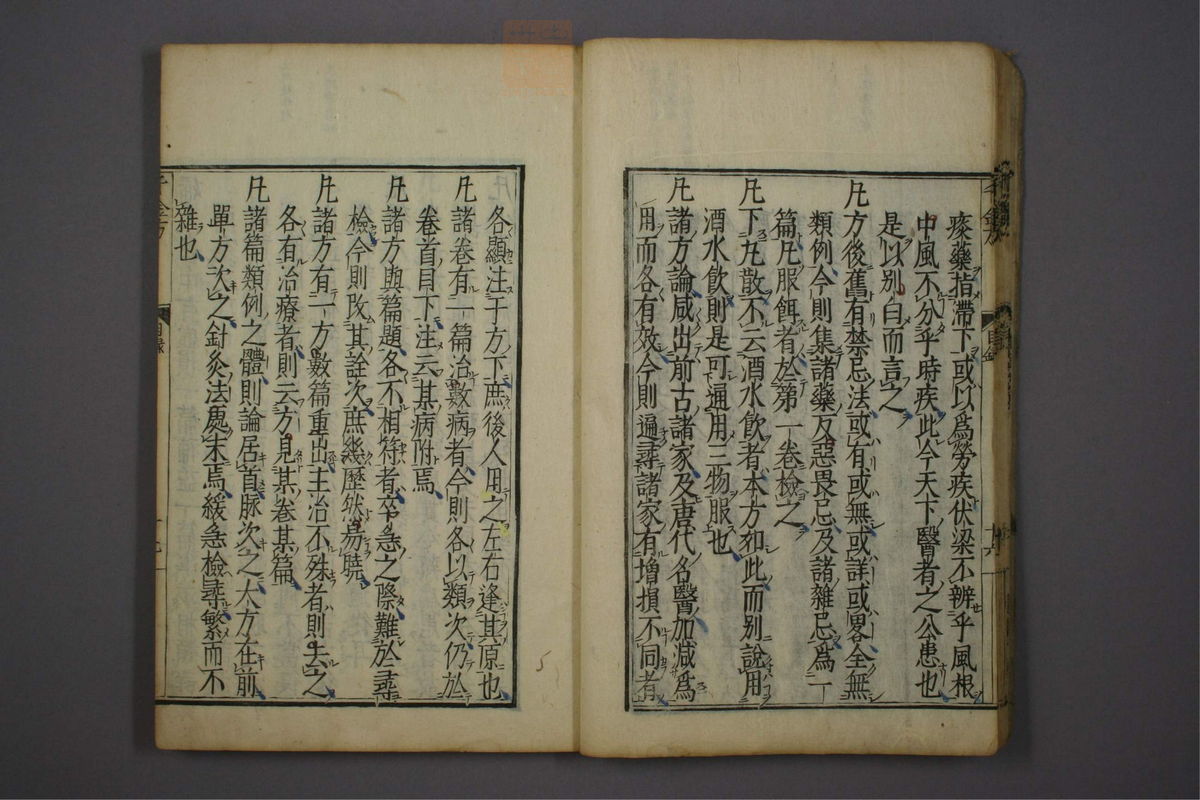 痰藥指滯下或以爲勞疾伏梁不辨乎風根
中風不分乎時疾此今天下醫者之公患也
是以別白而言之
凡方後舊有禁忌法或有或無或詳或畧全無
類例今則集諸藥反惡畏忌及諸雜忌爲一
篇凡服餌者於第一卷檢之
凡下丸散不云酒水飲者本方如此而別說用
酒水飲則是可通用三物服也
凡諸方論咸出前古諸家及唐代名醫加減爲
用而各有效今則遍尋諸家有增損不同者
各顯注于方下庶後人用之左右逢其原也
凡諸卷有一篇治數病者今則各以類次仍於
卷首目下注云某病附焉
凡諸方與篇題各不相符者卒急之際難於尋
檢今則改其詮次庶幾歷然易曉
凡諸方有一方數篇重出主治不殊者則去之
各有治療者則云方見某卷某篇
凡諸篇類例之體則論居首脉次之大方在前
單方次之針灸法處末焉緩急檢尋繁而不
雜也
千金方
目錄